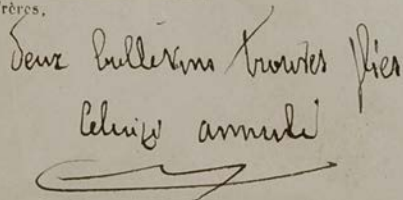 Frères,
deux bulletins trouvés pliés
Celui-ci annulé